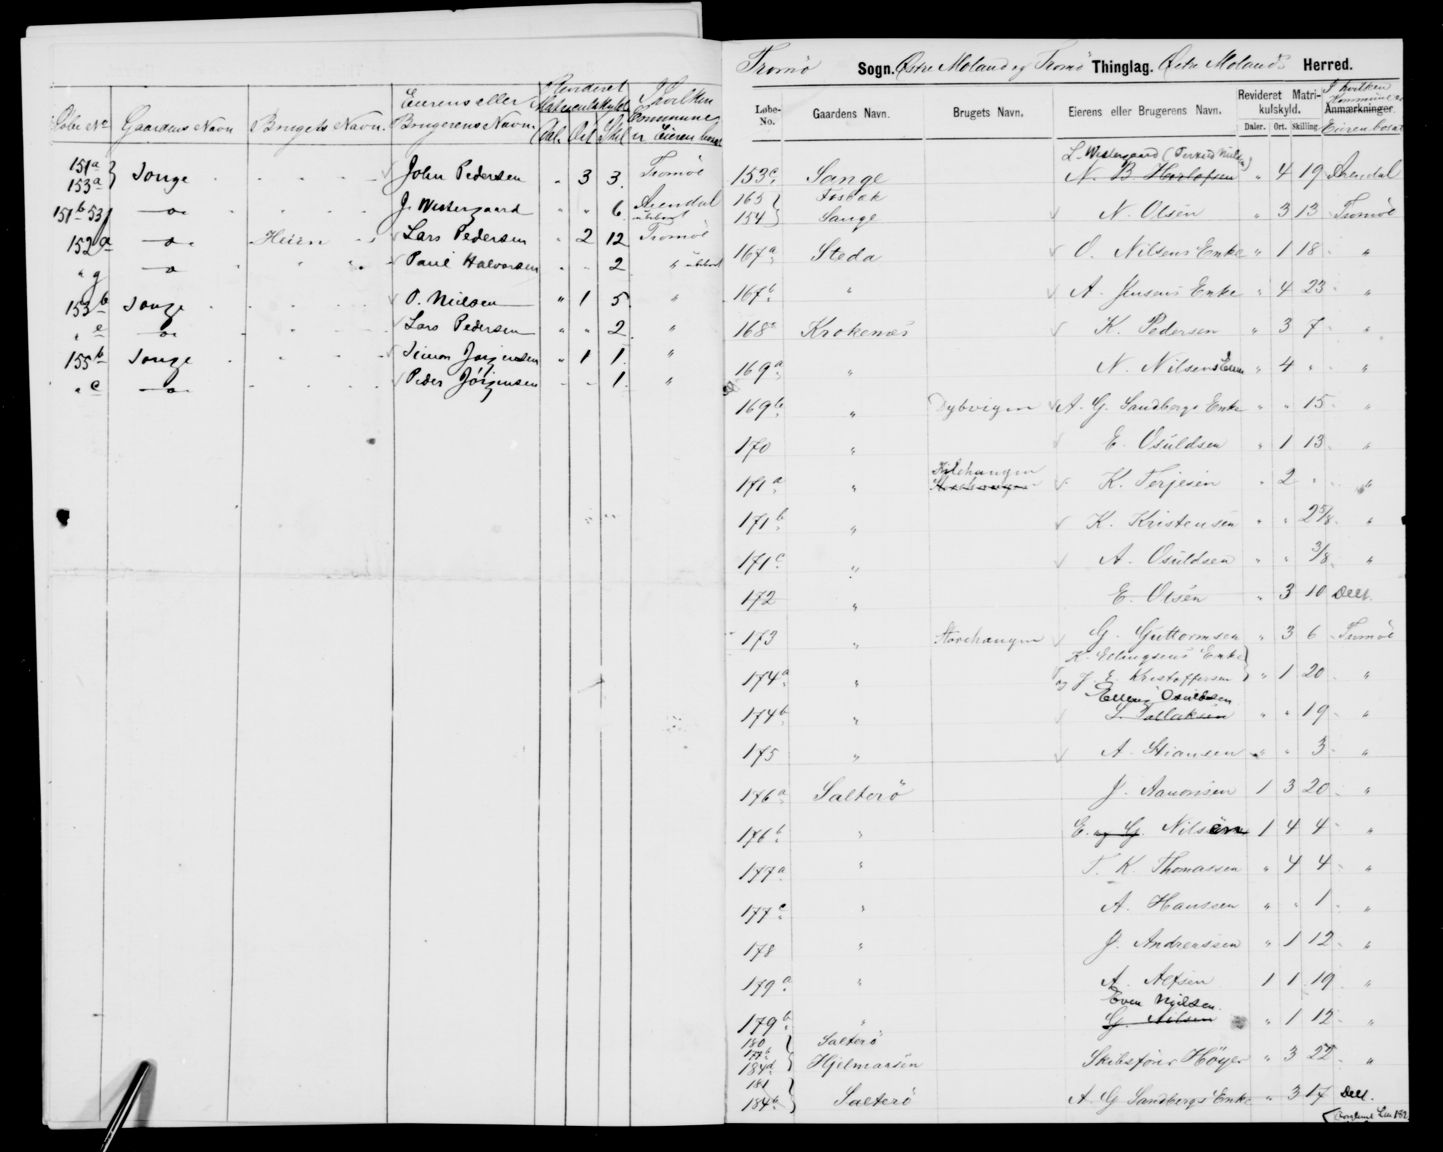 Løbe No Gaardens Navn Brugets Navn. Eierens eller Brugerens Navn. Revideret Matrikulskyld Dal. Ort Skil I hvilken Commune er Eieren bosat
151a 153a } Songe John Pedersen " 3 3. Tromöe
151b 53 —"— J. Westergaard " " 6. Arendal
152a —"— Heien Lars Pedersen " 2 12 Tromöe
" g —"— " Paul Halvorsen " " 2 "
153b Songe O. Nielsen " 1 5. "
" e —"— Lars Pedersen " " 2. "
155b Songe Simon Jørgensen " 1 1. "
" c —"— Peder Jörgensen " " 1. "
Tromö Sogn. Østre Moland og Tromö Thinglag. Østre Molands Herred.
Løbe-No. Gaardens Navn. Brugets Navn. Eierens eller Brugerens Navn. Revideret Matrikulskyld. Daler. Ort. Skilling. I hvilken Kommune er Anmærkninger. Eieren bosat
L. Westergaard (Terkild Nielsen)
153c. Songe N. B. Herlofsen " 4 19 Arendal
163 } Fosbæk
154 } Songe N. Olsen " 3 13 Tromöe
167a Steda O. Nilsens Enke " 1 18 "
167b " A. Jensens Enke " 4 23 "
168a Krokenæs K. Pedersen " 3 7 "
169a " N. Nilsens Enke " 4 " "
169b " Dybvigen A. G. Sandbergs Enke " " 15 "
170 " E. Osuldsen " 1 13 "
Kilehangen
171a " K. Terjesen " 2 " "
171b " K. Kristensen " " 2 5/8 "
171c " A. Osuldsen " " 3/8 "
172 " E. Olsen " 3 10 Dell.
173 " Storehangen G. Guttormsen " 3 6 Tromöe
K. Ellingsens Enke }
174a " og J. E. Kristoffersen " 1 20 "
Elling Osuldsen
174b " L. Tallaksen " " 19 "
175 " A. Stiansen " " 3 "
176a Salterö J. Aanonsen 1 3 20 "
176b " E. og G. Nilsen 1 4 4 "
177a " T. K. Thomassen " 4 4 "
177c " A. Hanssen " " 1 "
178 " J. Andreassen " 1 12 "
179a " A. Alfsen 1 1 19 "
Even Nielsen
179b " G. Nilsen " 1 12 "
180 Salterö
177b
184d } Hjelmaasen Skibsfører Höyer " 3 22 "
181
184b } Salterö A. G. Sandbergs Enke " 3 17 Dell.